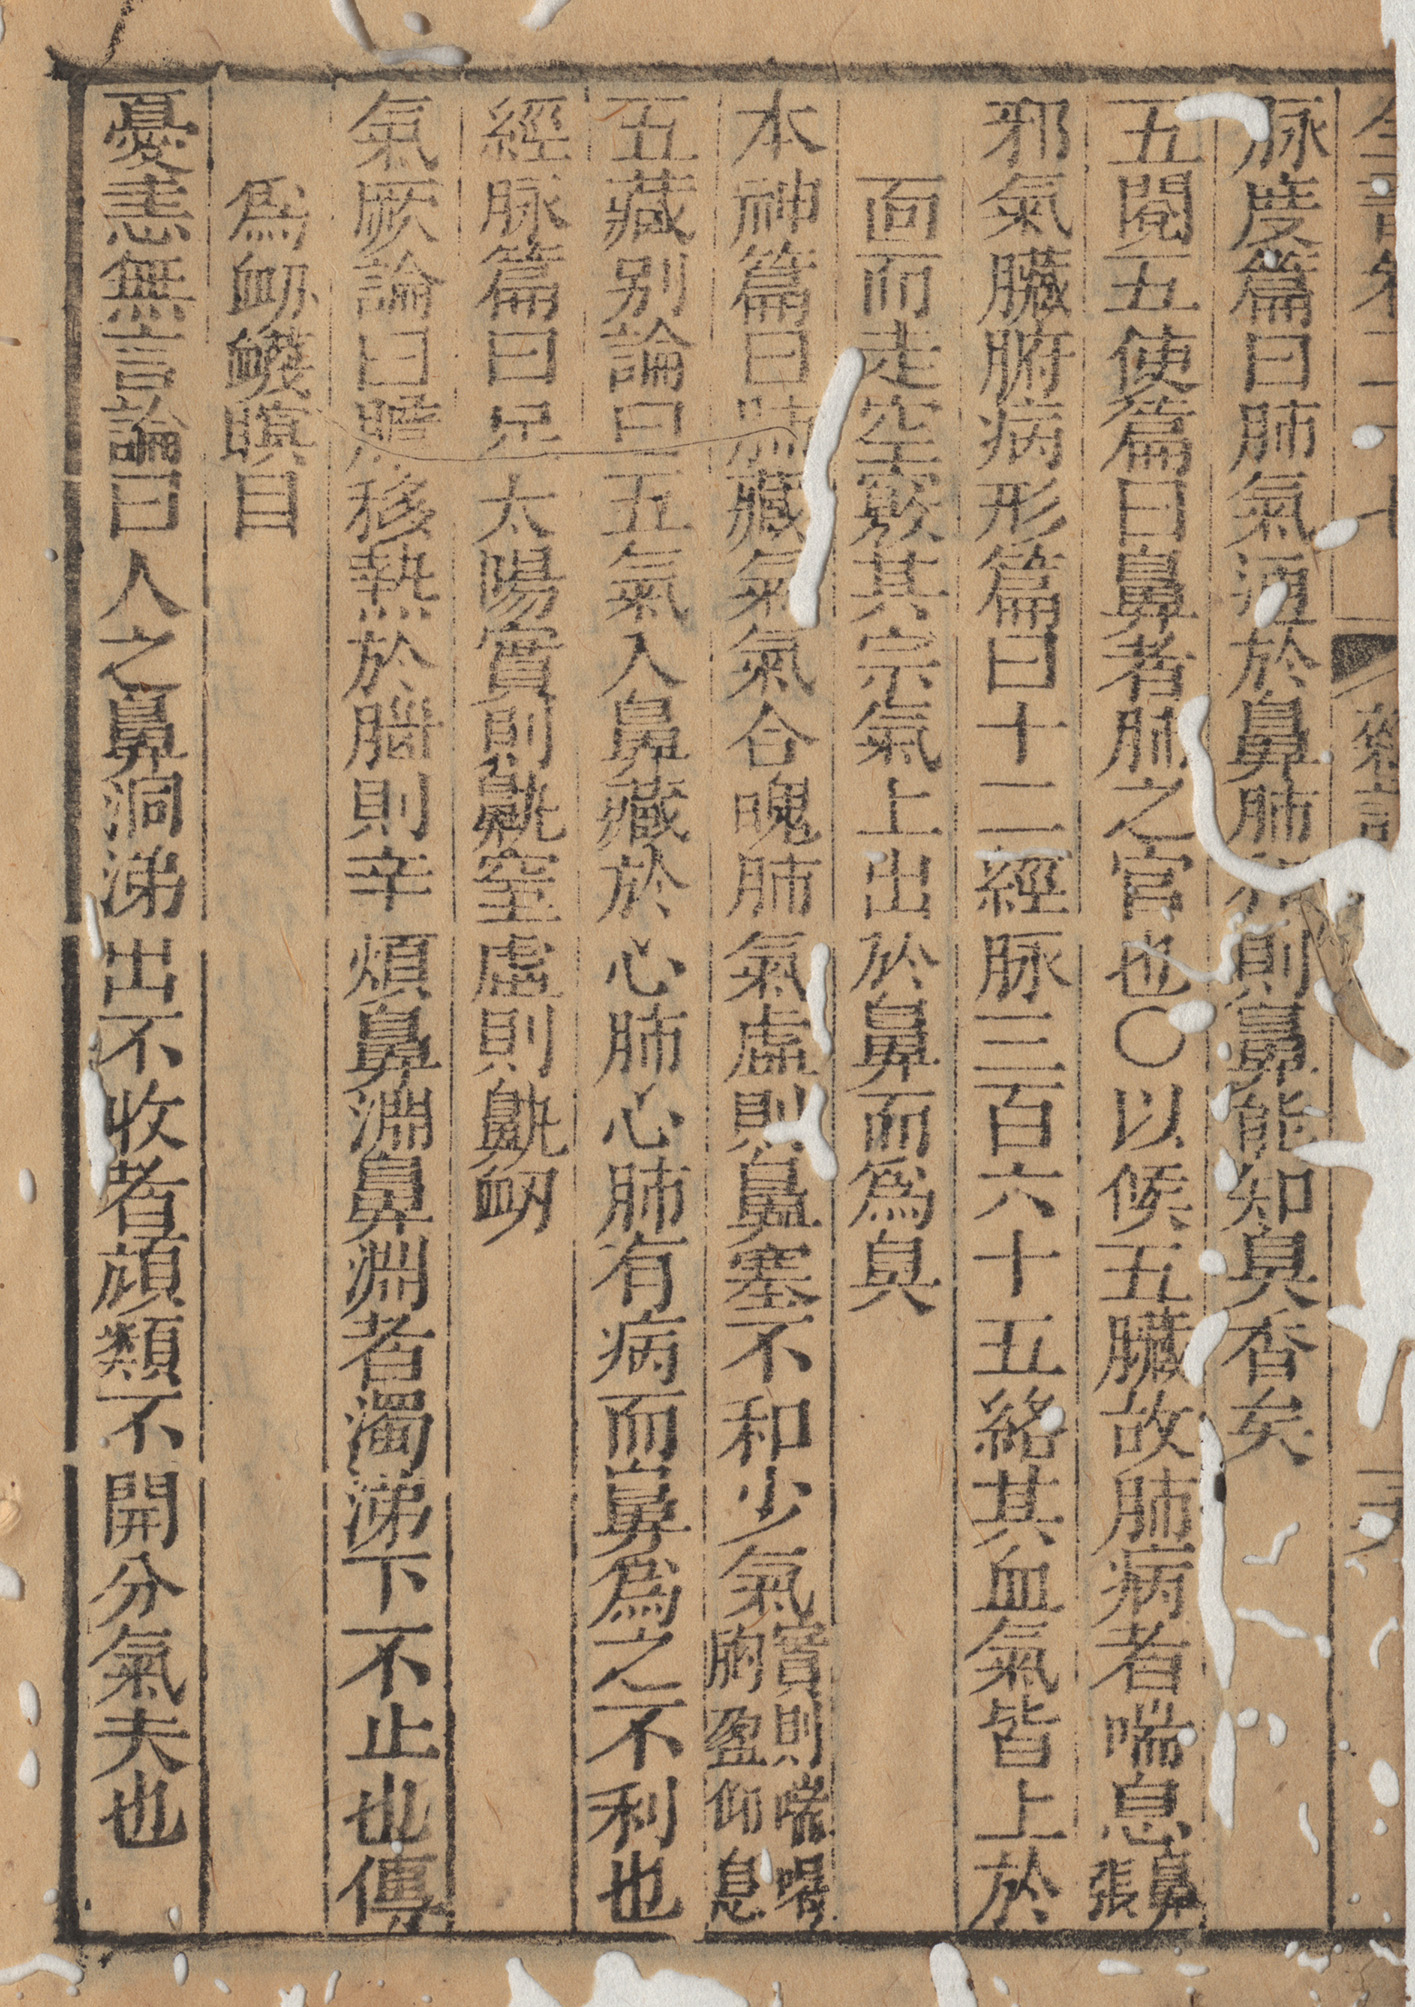 脉度篇曰肺氣通於鼻肺和則鼻能知臭香矣
五閱五使篇曰鼻者肺之官也〇以候五臟故肺病者喘息鼻張
邪氣臟腑病形篇曰十二經脉三百六十五絡其血氣皆上於
面而走空竅其宗氣上出於鼻而爲臭
本神篇曰肺藏氣氣合魄肺氣虛則鼻塞不和少氣實則喘喝胸盈仰息
五藏别論曰五氣入鼻藏於心肺心肺有病而鼻爲之不利也
經脉篇曰足太陽實則鼽窒虛則鼽衂
氣厥論曰膽移熱於腦則辛煩鼻淵鼻淵者濁涕下不止也傳
爲衂衊瞑目
憂恚無言論曰人之鼻洞涕出不收者頏顙不開分氣失也